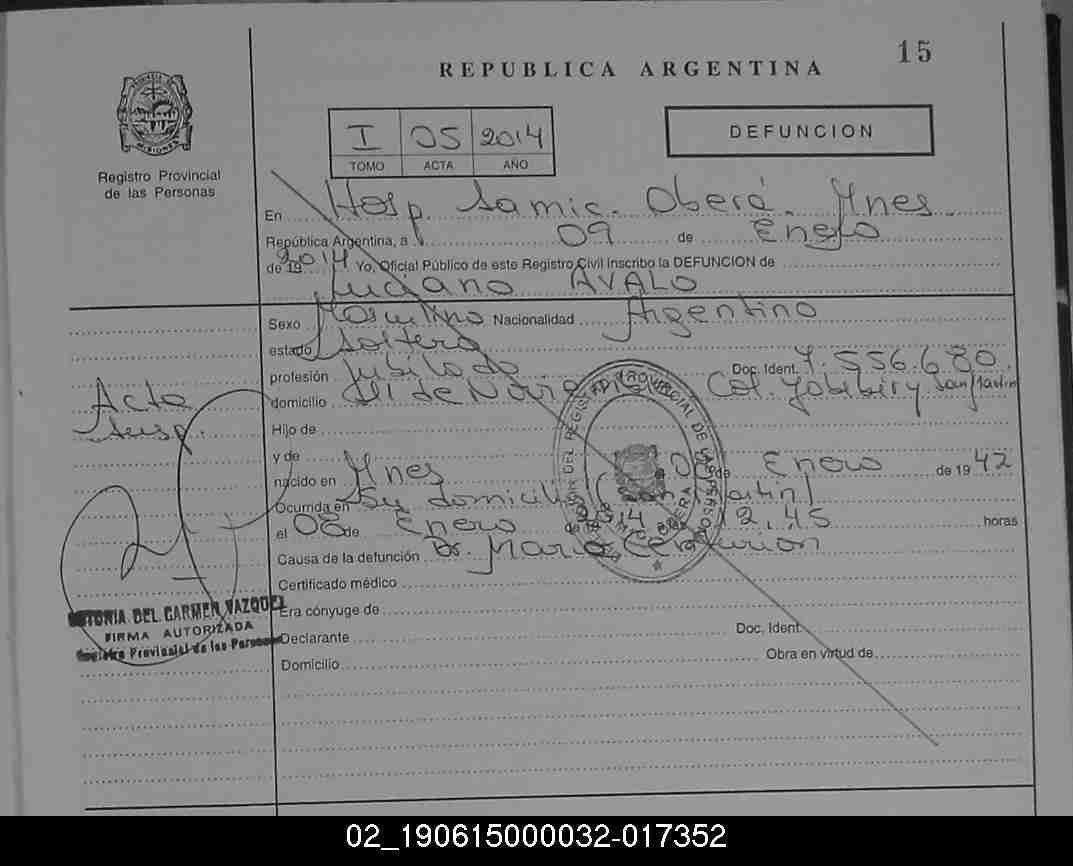 15
REPUBLICA ARGENTINA
PROVINCIA DE MISIONES
I 05 2014
TOMO ACTA AÑO
DEFUNCION
Registro Provincial
de las Personas
En Hosp. Samic. Oberá. Mnes
República Argentina, a 09 de Enero
de 19 2014 Yo, Oficial Público de este Registro Civil inscribo la DEFUNCION de
Luciano AVALO
Sexo Masculino Nacionalidad Argentino
estado Soltero
profesión Jubilado Doc. Ident. 7.556.680.
domicilio Col. San Martin
Acta
Susp.
Hijo de
y de
nacido en Mnes de Enero de 19 42
Ocurrida en Su domicilio (San Martin)
el 08 de Enero de 19 2014 12,45 horas
Causa de la defunción Dr. Mario Centurion
Certificado médico
Era cónyuge de
Declarante Doc. Ident.
Domicilio Obra en virtud de
DEL CARMEN VAZQUEZ
FIRMA AUTORIZADA
Registro Provincial de las Personas
02_190615000032-017352